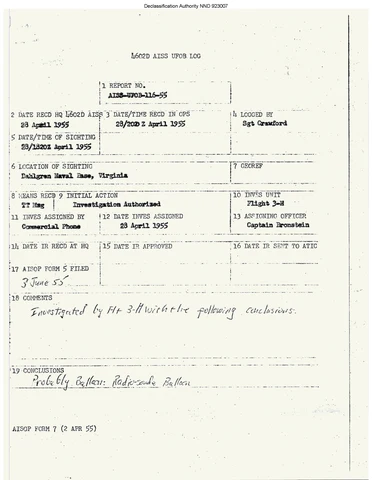 Declassification Authority NND 923007
4602D AISS UFOB LOG
1 REPORT NO.
AISS-UFOB-116-55
2 DATE RECD HQ 4602D AISS 3 DATE/TIME RECD IN CPS 4 LOGGED BY
28 April 1955 28/2020 Z April 1955 Sgt Crawford
5 DATE/TIME OF SIGHTING
28/1820Z April 1955
6 LOCATION OF SIGHTING 7 GEOREF
Dahlgren Naval Base, Virginia
8 MEANS RECD 9 INITIAL ACTION 10 INVES UNIT
TT Msg Investigation Authorized Flight 3-H
11 INVES ASSIGNED BY 12 DATE INVES ASSIGNED 13 ASSIGNING OFFICER
Commercial Phone 28 April 1955 Captain Bronstein
14 DATE IR RECD AT HQ 15 DATE IR APPROVED 16 DATE IR SENT TO ATIC
17 AISOP FORM 5 FILED
3 June 55
18 COMMENTS
Investigated by Flt 3-H with the following conclusions.
19 CONCLUSIONS
Probably Balloon: Radiosonde Balloon
AISOP FORM 7 (2 APR 55)